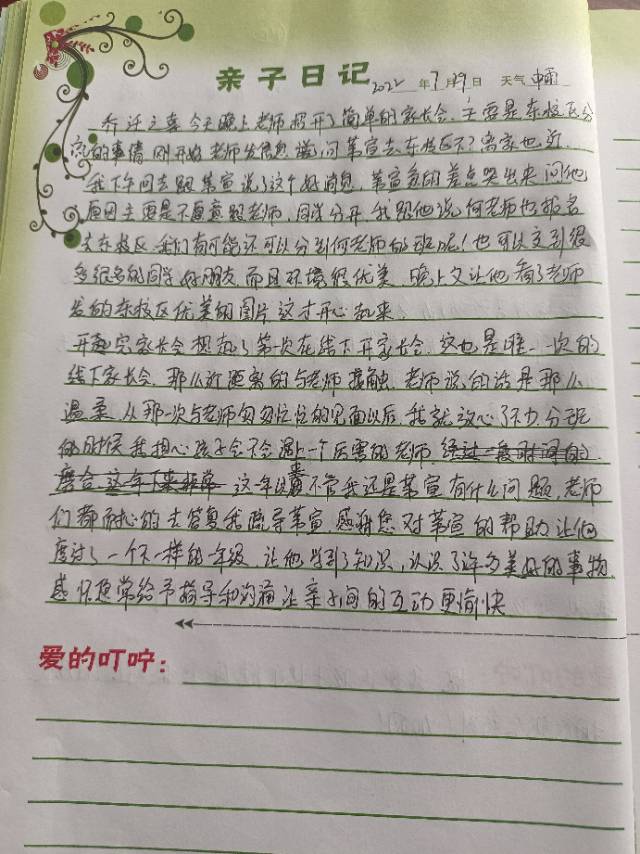 亲子日记 2022年7月29日 天气 中雨
乔迁之喜 今天晚上老师召开了简单的家长会.主要是东校区分
流的事情 刚开始老师发信息说问 萱去东校区不?离家也近.
我下午回去跟 萱说了这个好消息, 萱 的差点哭出来 问他
原因主要是不愿意跟老师,同学分开,我跟他说何老师也报名
去东校区 我们有可能还可以分到何老师的班呢!也可以交到很
多很多的同学好朋友 而且环境很优美.晚上又让他看了老师
发的东校区优美的图片 这才开心起来
开完家长会想起了第一次在线下开家长会.这也是唯一一次的
线下家长会.那么近距离的与老师接触.老师说的话是那么
温柔.从那一次与老师匆匆忙忙的见面以后,我就放心了不少.分班
的时候 我担心孩子会不会遇上一个厉害的老师 经过一段时间的
磨合.这年下来 这年 不管我还是 萱有什么问题,老师
们都耐心的去答复我 导 萱.感谢您对 萱的帮助让他
度过了一个不一样的一年级.让他学到了知识,认识了许多美好的事物.
感 您常给予指导和沟通让亲子间的互动更愉快
爱的叮咛: